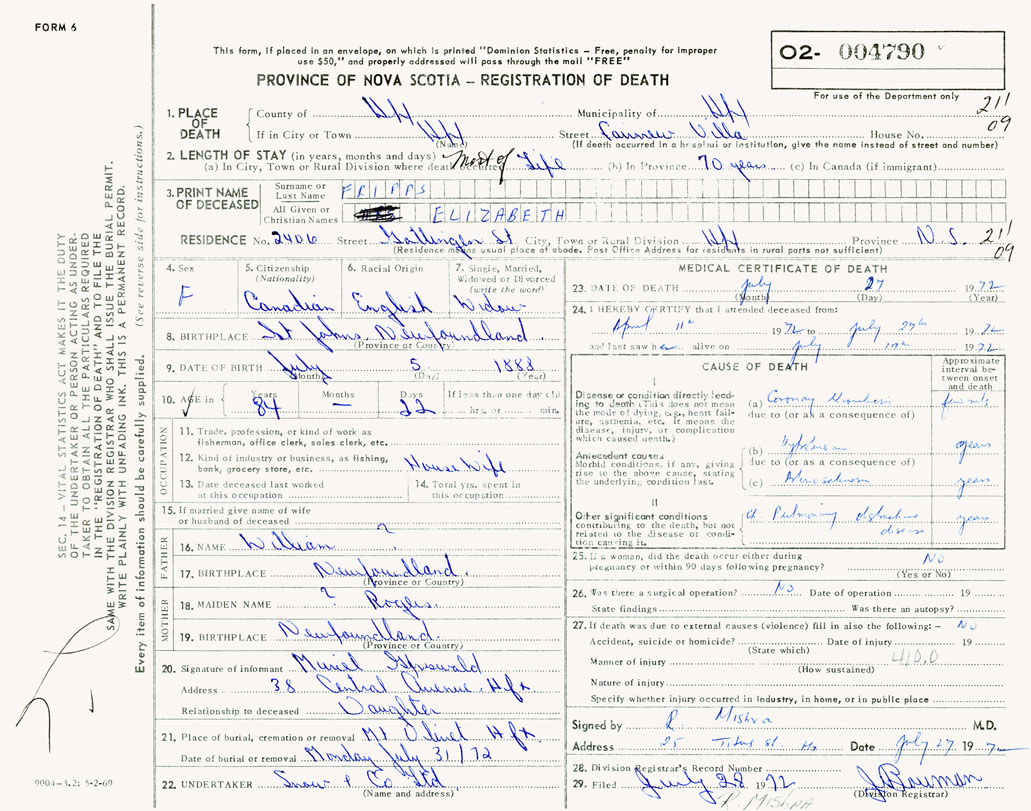 FORM 6
This form, if placed in an envelope, on which is printed "Dominion Statistics – Free, penalty for improper
use $50," and properly addressed will pass through the mail "FREE"
PROVINCE OF NOVA SCOTIA – REGISTRATION OF DEATH
02- 004790
For use of the Department only
211
09
1. PLACE OF DEATH
County of Hfx Municipality of Hfx
If in City or Town Hfx Street Fairview Villa House No.
(Name) (If death occurred in a hospital or institution, give the name instead of street and number)
2. LENGTH OF STAY (in years, months and days)
(a) In City, Town or Rural Division where death occurred Most of Life (b) In Province 70 years (c) In Canada (if immigrant)
3. PRINT NAME OF DECEASED
Surname or Last Name FRIPPS
All Given or Christian Names ELIZABETH
RESIDENCE No. 2406 Street Gottingen St City, Town or Rural Division Hfx Province N.S. 211
09
(Residence means usual place of abode. Post Office Address for residents in rural parts not sufficient)
4. Sex F
5. Citizenship (Nationality) Canadian
6. Racial Origin English
7. Single, Married, Widowed or Divorced (write the word) Widow
8. BIRTHPLACE St Johns, Newfoundland.
(Province or Country)
9. DATE OF BIRTH July 5 1888
(Month) (Day) (Year)
10. AGE in Years 84 Months – Days 22 If less than one day old
hrs. or min.
OCCUPATION
11. Trade, profession, or kind of work as fisherman, office clerk, sales clerk, etc.
12. Kind of industry or business, as fishing, bank, grocery store, etc. House Wife
13. Date deceased last worked at this occupation
14. Total yrs. spent in this occupation
15. If married give name of wife or husband of deceased
FATHER
16. NAME William ?
17. BIRTHPLACE Newfoundland.
(Province or Country)
MOTHER
18. MAIDEN NAME ?
19. BIRTHPLACE Newfoundland.
(Province or Country)
20. Signature of informant Muriel
Address 38 Central Avenue, Hfx.
Relationship to deceased Daughter
21. Place of burial, cremation or removal Mt Olivet Hfx
Date of burial or removal Monday July 31/72
22. UNDERTAKER Snow & Co Ltd.
(Name and address)
MEDICAL CERTIFICATE OF DEATH
23. DATE OF DEATH July 27 1972
(Month) (Day) (Year)
24. I HEREBY CERTIFY that I attended deceased from:
April 11th 1972 to July 27th 1972
and last saw her alive on July 19th 1972
CAUSE OF DEATH
Approximate interval between onset and death
I
Disease or condition directly leading to death (This does not mean the mode of dying, e.g., heart failure, asthenia, etc. it means the disease, injury, or complication which caused death.)
(a) Coronary thrombosis few mts.
due to (or as a consequence of)
Antecedent causes
Morbid conditions, if any, giving rise to the above cause, stating the underlying condition last.
(b) years
due to (or as a consequence of)
(c) years
II
Other significant conditions contributing to the death, but not related to the disease or condition causing it.
Ch. Pulmonary obstructive disease years
25. If a woman, did the death occur either during pregnancy or within 90 days following pregnancy? NO
(Yes or No)
26. Was there a surgical operation? NO Date of operation 19
State findings Was there an autopsy?
27. If death was due to external causes (violence) fill in also the following: – NO
Accident, suicide or homicide? Date of injury 19
(State which)
Manner of injury 410.0
(How sustained)
Nature of injury
Specify whether injury occurred in Industry, in home, or in public place
Signed by R. Mishra M.D.
Address 25 Titus St. Hx Date July 27 1972
28. Division Registrar's Record Number
29. Filed July 28 1972 J. Bowman
(Division Registrar)
R. MISHRA
SEC. 14 – VITAL STATISTICS ACT MAKES IT THE DUTY
OF THE UNDERTAKER OR PERSON ACTING AS UNDER-
TAKER TO OBTAIN ALL THE PARTICULARS REQUIRED
IN THE "REGISTRATION OF DEATH" AND TO FILE THE
SAME WITH THE DIVISION REGISTRAR WHO SHALL ISSUE THE BURIAL PERMIT.
WRITE PLAINLY WITH UNFADING INK. THIS IS A PERMANENT RECORD.
Every item of information should be carefully supplied. (See reverse side for instructions.)
9004-3.2: 5-2-69